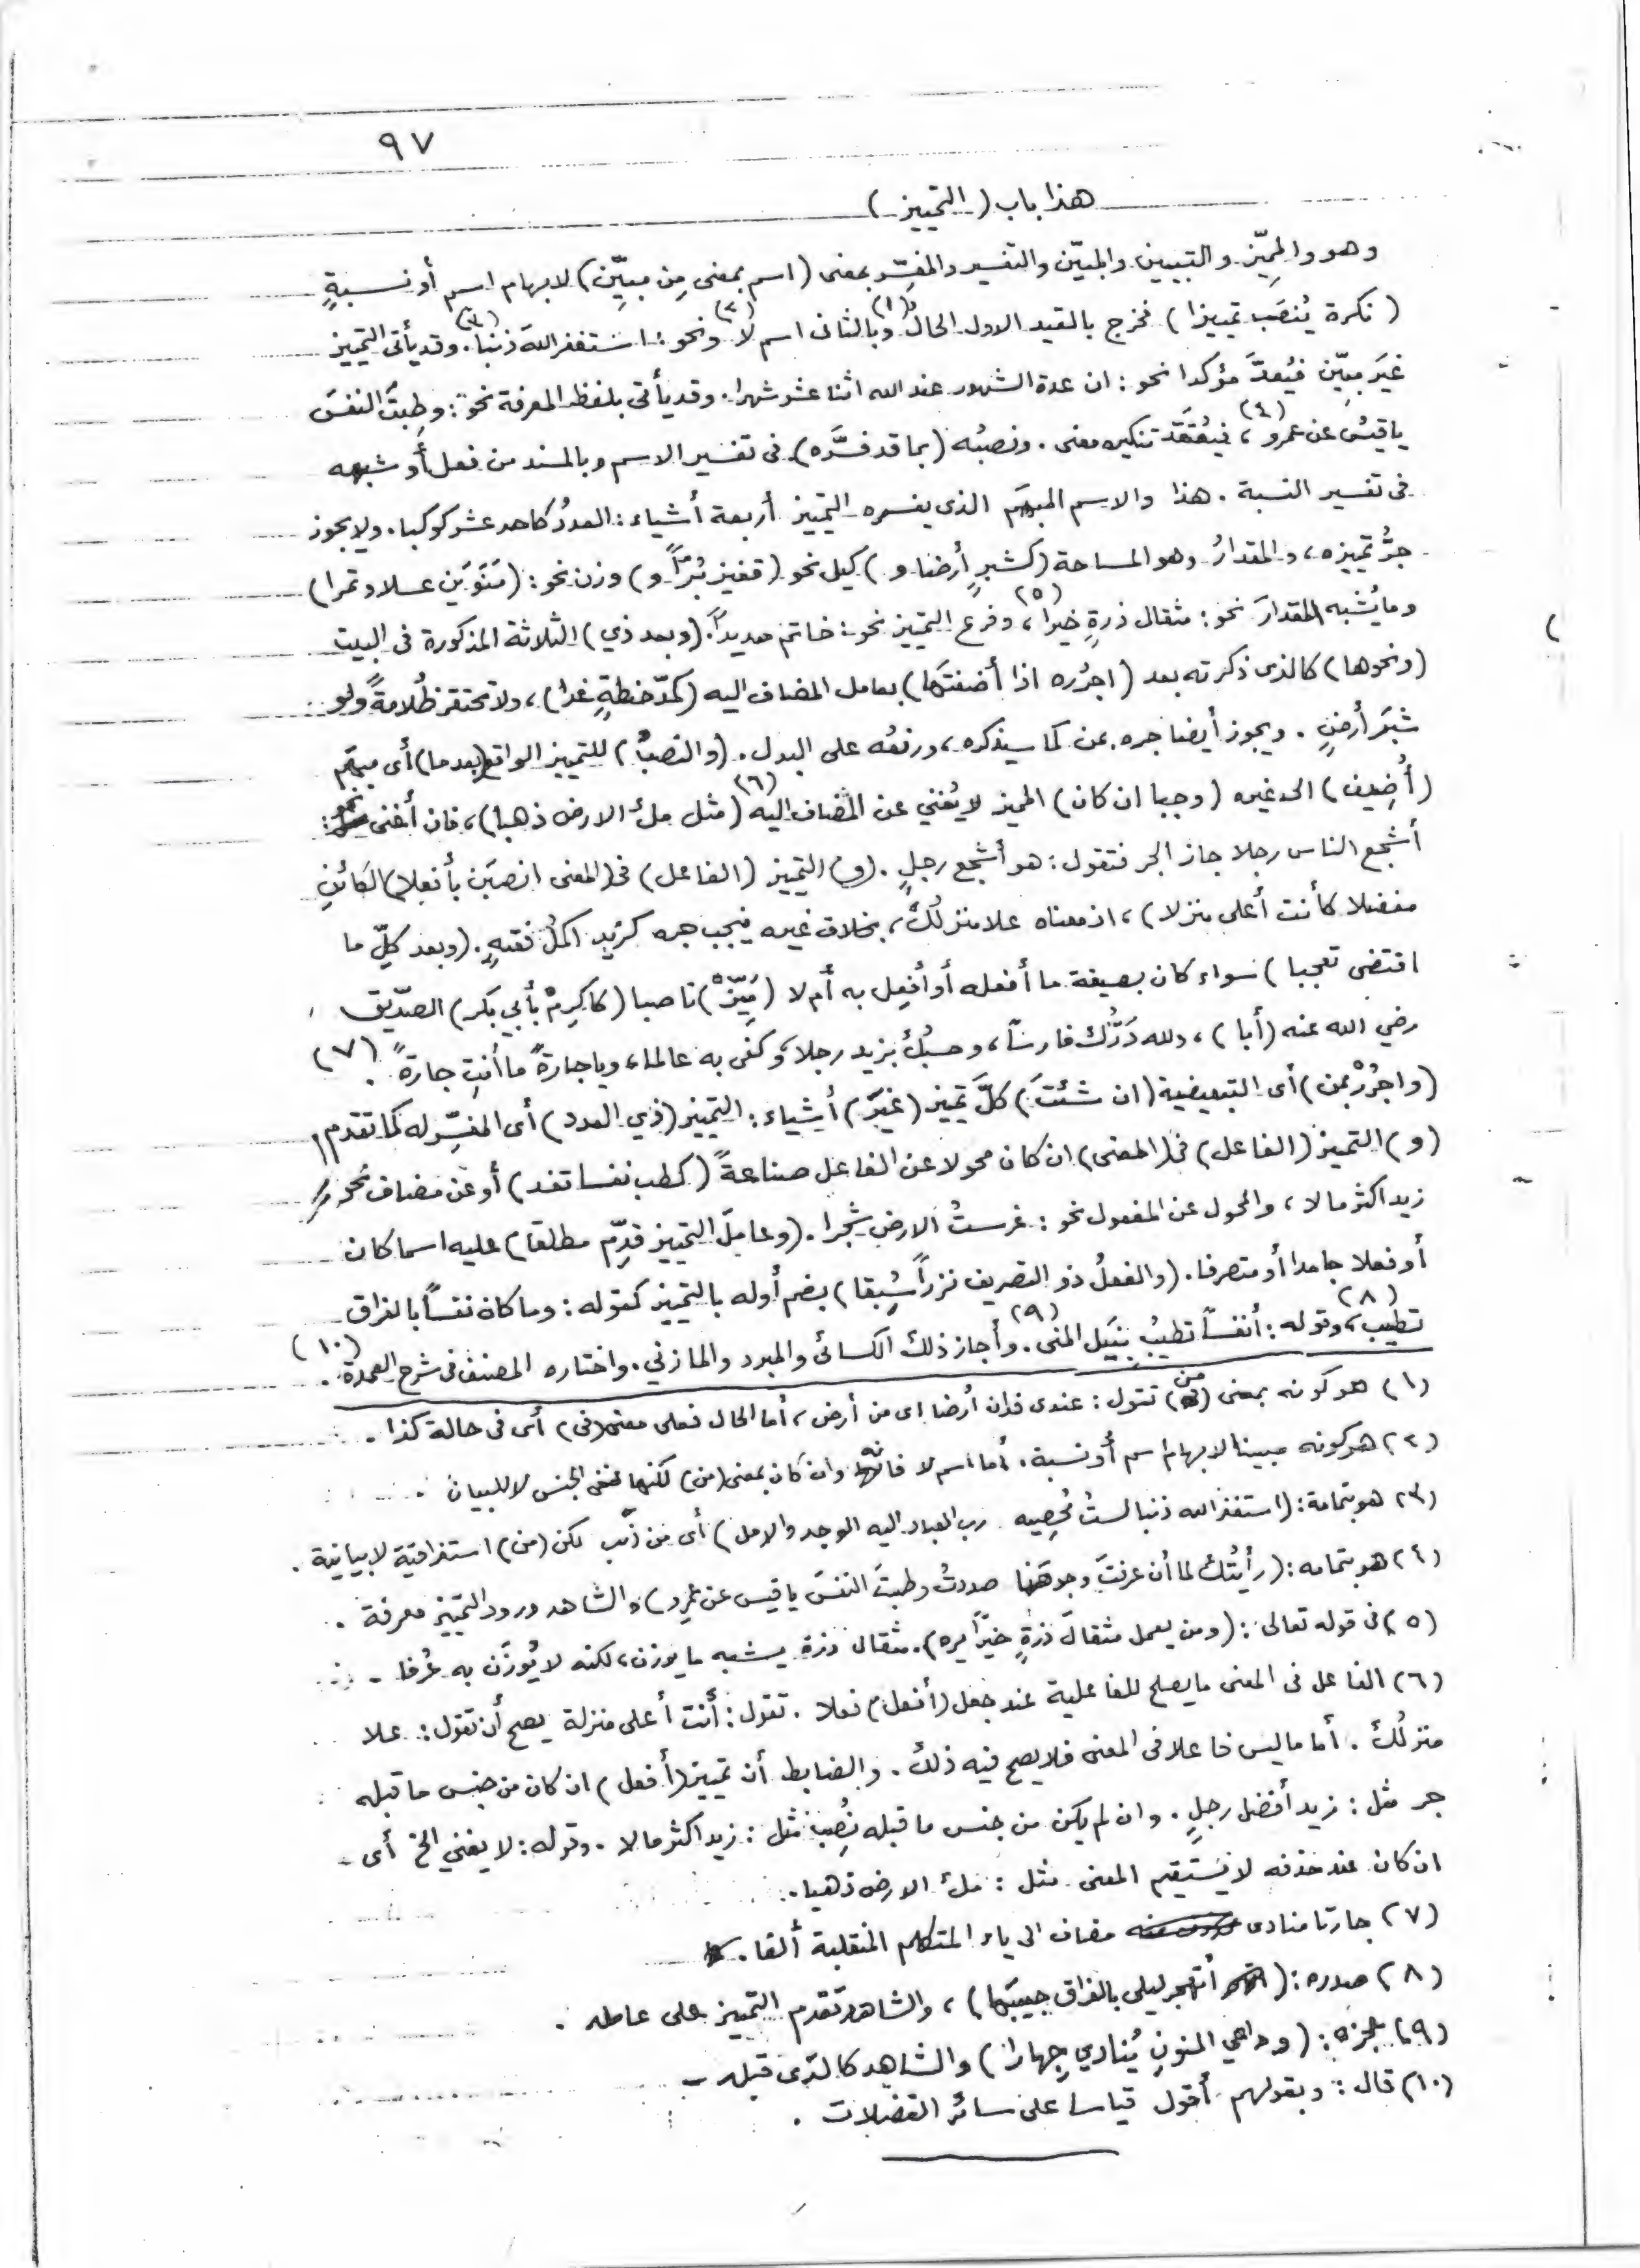 ٩٧
هذا باب ( التمييز )
وهو والمميِّز والتبيين والمبيّن والتفسير والمفسِّر بمعنى ( اسم بمعنى مِن مبيِّن ) لابهام اسم أو نسبةٍ
( نكرة يُنصَب تمييزا ) فخرج بالقيد الاول الحال (١) وبالثانى اسم لا (٢) ونحو : استغفر اللهَ ذنبًا (٣) . وقد يأتى التمييز
غيَر مبيّن فيُعدّ مؤكدا نحو : ان عدة الشهور عند الله اثنا عشر شهرا . وقد يأتى بلفظ المعرفة نحو : وطِبتَ النفسَ
ياقيسُ عن عمرو (٤) ، فيُعتقَد تنكيره معنى . ونصبُه ( بما قد فسَّره ) فى تفسير الاسم وبالمسند من فعل أو شبهه
فى تفسير النسبة . هذا والاسم المبهَم الذى يفسره التمييز أربعة أشياء : العددُ كاحد عشر كوكبا . ولا يجوز
جرُّ تمييزه ، والمقدارُ وهو المساحة ( كشبرٍ أرضا و ) كيل نحو ( قفيز بُرّاً و ) وزن نحو : ( مَنَوَين عسلا وتمرا )
وما يُشبه المقدارَ نحو : مثقال ذرةٍ خيرا (٥) ، وفرع التمييز نحو : خاتم حديداً . ( وبعد ذي ) الثلاثة المذكورة فى البيت
( ونحوها ) كالذى ذكرته بعد ( اجرُره اذا أضفتَها ) بعامل المضاف اليه ( كمدّ حنطةٍ غذا ) ، ولا تحتقر ظُلامةً ولو
شبَر أرضٍ . ويجوز أيضا جره بمن كما سيذكره ، ورفعُه على البدل . ( والنصبُ ) للتمييز الواقع ( بعد ما ) أى مبهَم
( أُضيف ) الى غيره ( وجبا ان كان ) المميز لا يُغني عن المضاف اليه (٦) ( مثل ملءُ الارض ذهبا ) ، فان أغنى نحو :
أشجع الناس رجلا جاز الجر فتقول : هو أشجع رجلٍ . ( و ) التمييز ( الفاعل ) فى ( المعنى انصبَن بأفعلا ) الكائنِ
مفضلا كأنت أعلى منزلا ) ، اذ معناه علا منزلُك ، بخلاف غيره فيجب جره كزيد اكملُ فقيهٍ . ( وبعد كلِّ ما
اقتضى تعجبا ) سواء كان بصيغة ما أفعله أو أفعِل به أم لا ( مَيِّزْ ) ناصبا ( كاكرِمْ بأبي بكر ) الصدّيق
رضي الله عنه ( أبا ) ، ولله دَرُّك فارساً ، وحسبُك بزيد رجلا ، وكفى به عالما ، ويا جارةً ما أنتِ جارةً . (٧)
( واجرُرْ بمن ) أى التبعيضية ( ان شئتَ ) كلَّ تمييز ( غيَر ) أشياء : التمييز ( ذي العدد ) أى المفسِّر له كما تقدم
( و ) التمييز ( الفاعل ) فى ( المعنى ) ان كان محولا عن الفاعل صناعةً ( كطب نفسا تفد ) أو عن مضاف نحو
زيد اكثر مالا ، والمحول عن المفعول نحو : غرستُ الارض شجرا . ( وعاملَ التمييز قدِّم مطلقا ) عليه اسما كان
أو فعلا جامدا أو متصرفا . ( والفعلُ ذو التصريف نزراً سُبِقا ) بضم أوله بالتمييز كقوله : وما كان نفساً بالفراق
تطيب (٨) ، وقوله : أنفساً تطيبُ بنَيل المنى (٩) . وأجاز ذلك الكسائى والمبرد والمازني . واختاره المصنف فى شرح العمدة . (١٠)
(١) هو كونه بمعنى ( من ) تقول : عندى فدان أرضا اى من أرض ، أما الحال فعلى معنى ( فى ) أى فى حالة كذا .
(٢) هو كونه مبينا لابهام اسم أو نسبة . أما اسم لا فانه وان كان بمعنى ( من ) لكنها لنفى الجنس لا للبيان .
(٣) هو بتمامه : ( استغفر الله ذنبا لستُ مُحصِيه رب العباد اليه الوجه والعمل ) أى من ذنب لكن ( من ) استغراقية لا بيانية .
(٤) هو بتمامه : ( رأيتُك لما أن عرفتَ وجوهَنا صددتُ وطبتَ النفسَ يا قيس عن عمرو ) والشاهد ورود التمييز معرفة .
(٥) فى قوله تعالى : ( ومن يعمل مثقالَ ذرةٍ خيرًا يره ) . مثقال ذرة يشبه ما يوزن ، لكنه لا يُوزَن به عُرفا .
(٦) الفاعل فى المعنى ما يصلح للفاعلية عند جعل ( أفعل ) فعلا . تقول : أنت أعلى منزلة يصح أن تقول : علا
منزلُك . أما ما ليس فاعلا فى المعنى فلا يصح فيه ذلك . والضابط أن تمييز ( أفعل ) ان كان من جنس ما قبله
جر مثل : زيد أفضل رجلٍ . وان لم يكن من جنس ما قبله نُصِب مثل : زيد اكثر مالا . وقوله : لا يغني الخ أى
ان كان عند حذفه لا يَستقيم المعنى مثل : ملءُ الارض ذهبا .
(٧) جارتا منادى مضاف الى ياء المتكلم المنقلبة ألفا .
(٨) صدره : ( أتهجر ليلى بالفراق حبيبَها ) ، والشاهد تقدم التمييز على عامله .
(٩) عجزه : ( وداعي المنونِ يُنادي جِهارا ) والشاهد كالذى قبله .
(١٠) قال : وبقولهم أقول قياسا على سائر الفضلات .